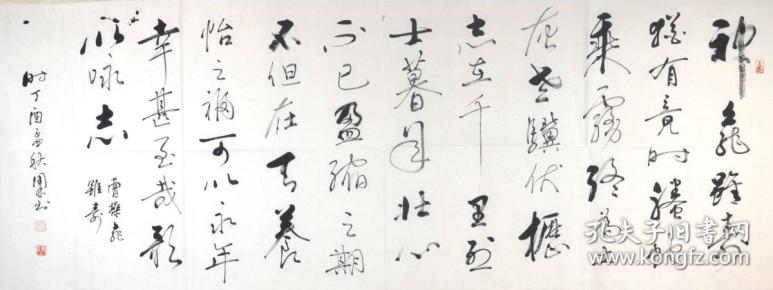 神龜雖壽
猶有竟时螣蛇
乘霧終為土
灰老驥伏櫪
志在千里烈
士暮年壯心
不已盈縮之期
不但在天養
怡之福可以永年
幸甚至哉歌
以咏志
曹操龜
雖壽
时丁酉孟秋國書
孔夫子旧书网
www.kongfz.com